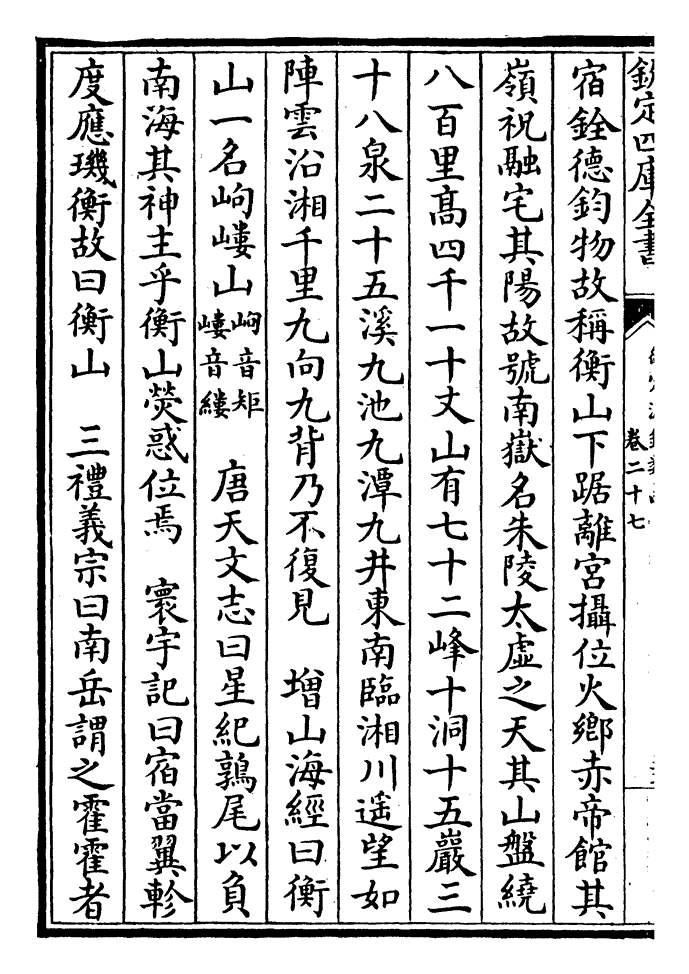 欽定四庫全書
卷二十七
宿銓德鈞物故稱衡山下踞離宮攝位火鄉赤帝館其
嶺祝融宅其陽故號南嶽名朱陵太虛之天其山盤繞
八百里髙四千一十丈山有七十二峰十洞十五巖三
十八泉二十五溪九池九潭九井東南臨湘川遥望如
陣雲沿湘千里九向九背乃不復見　增山海經曰衡
山一名岣嶁山岣音矩嶁音縷　唐天文志曰星紀鶉尾以負
南海其神主乎衡山熒惑位焉　寰宇記曰宿當翼軫
度應璣衡故曰衡山　三禮義宗曰南岳謂之霍霍者